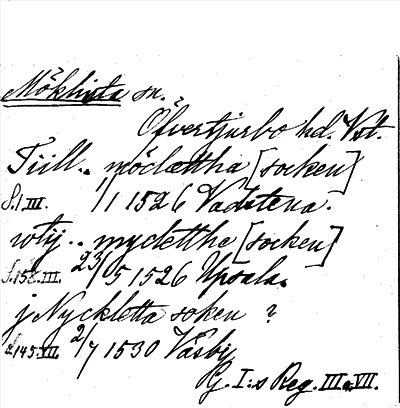 Möklinta sn.
Öfvertjurbo hd. Vst.
Tiill.. möclættha [socken]
S. 1 III. 1/1 1526 Vadstena.
utij.. mycletthe [socken]
S. 158. III. 23/5 1526 Upsala.
j Nyckletta soken ?
S. 145. VII. 2/7 1530 Väsby
G. I:s Reg. III o. VII.